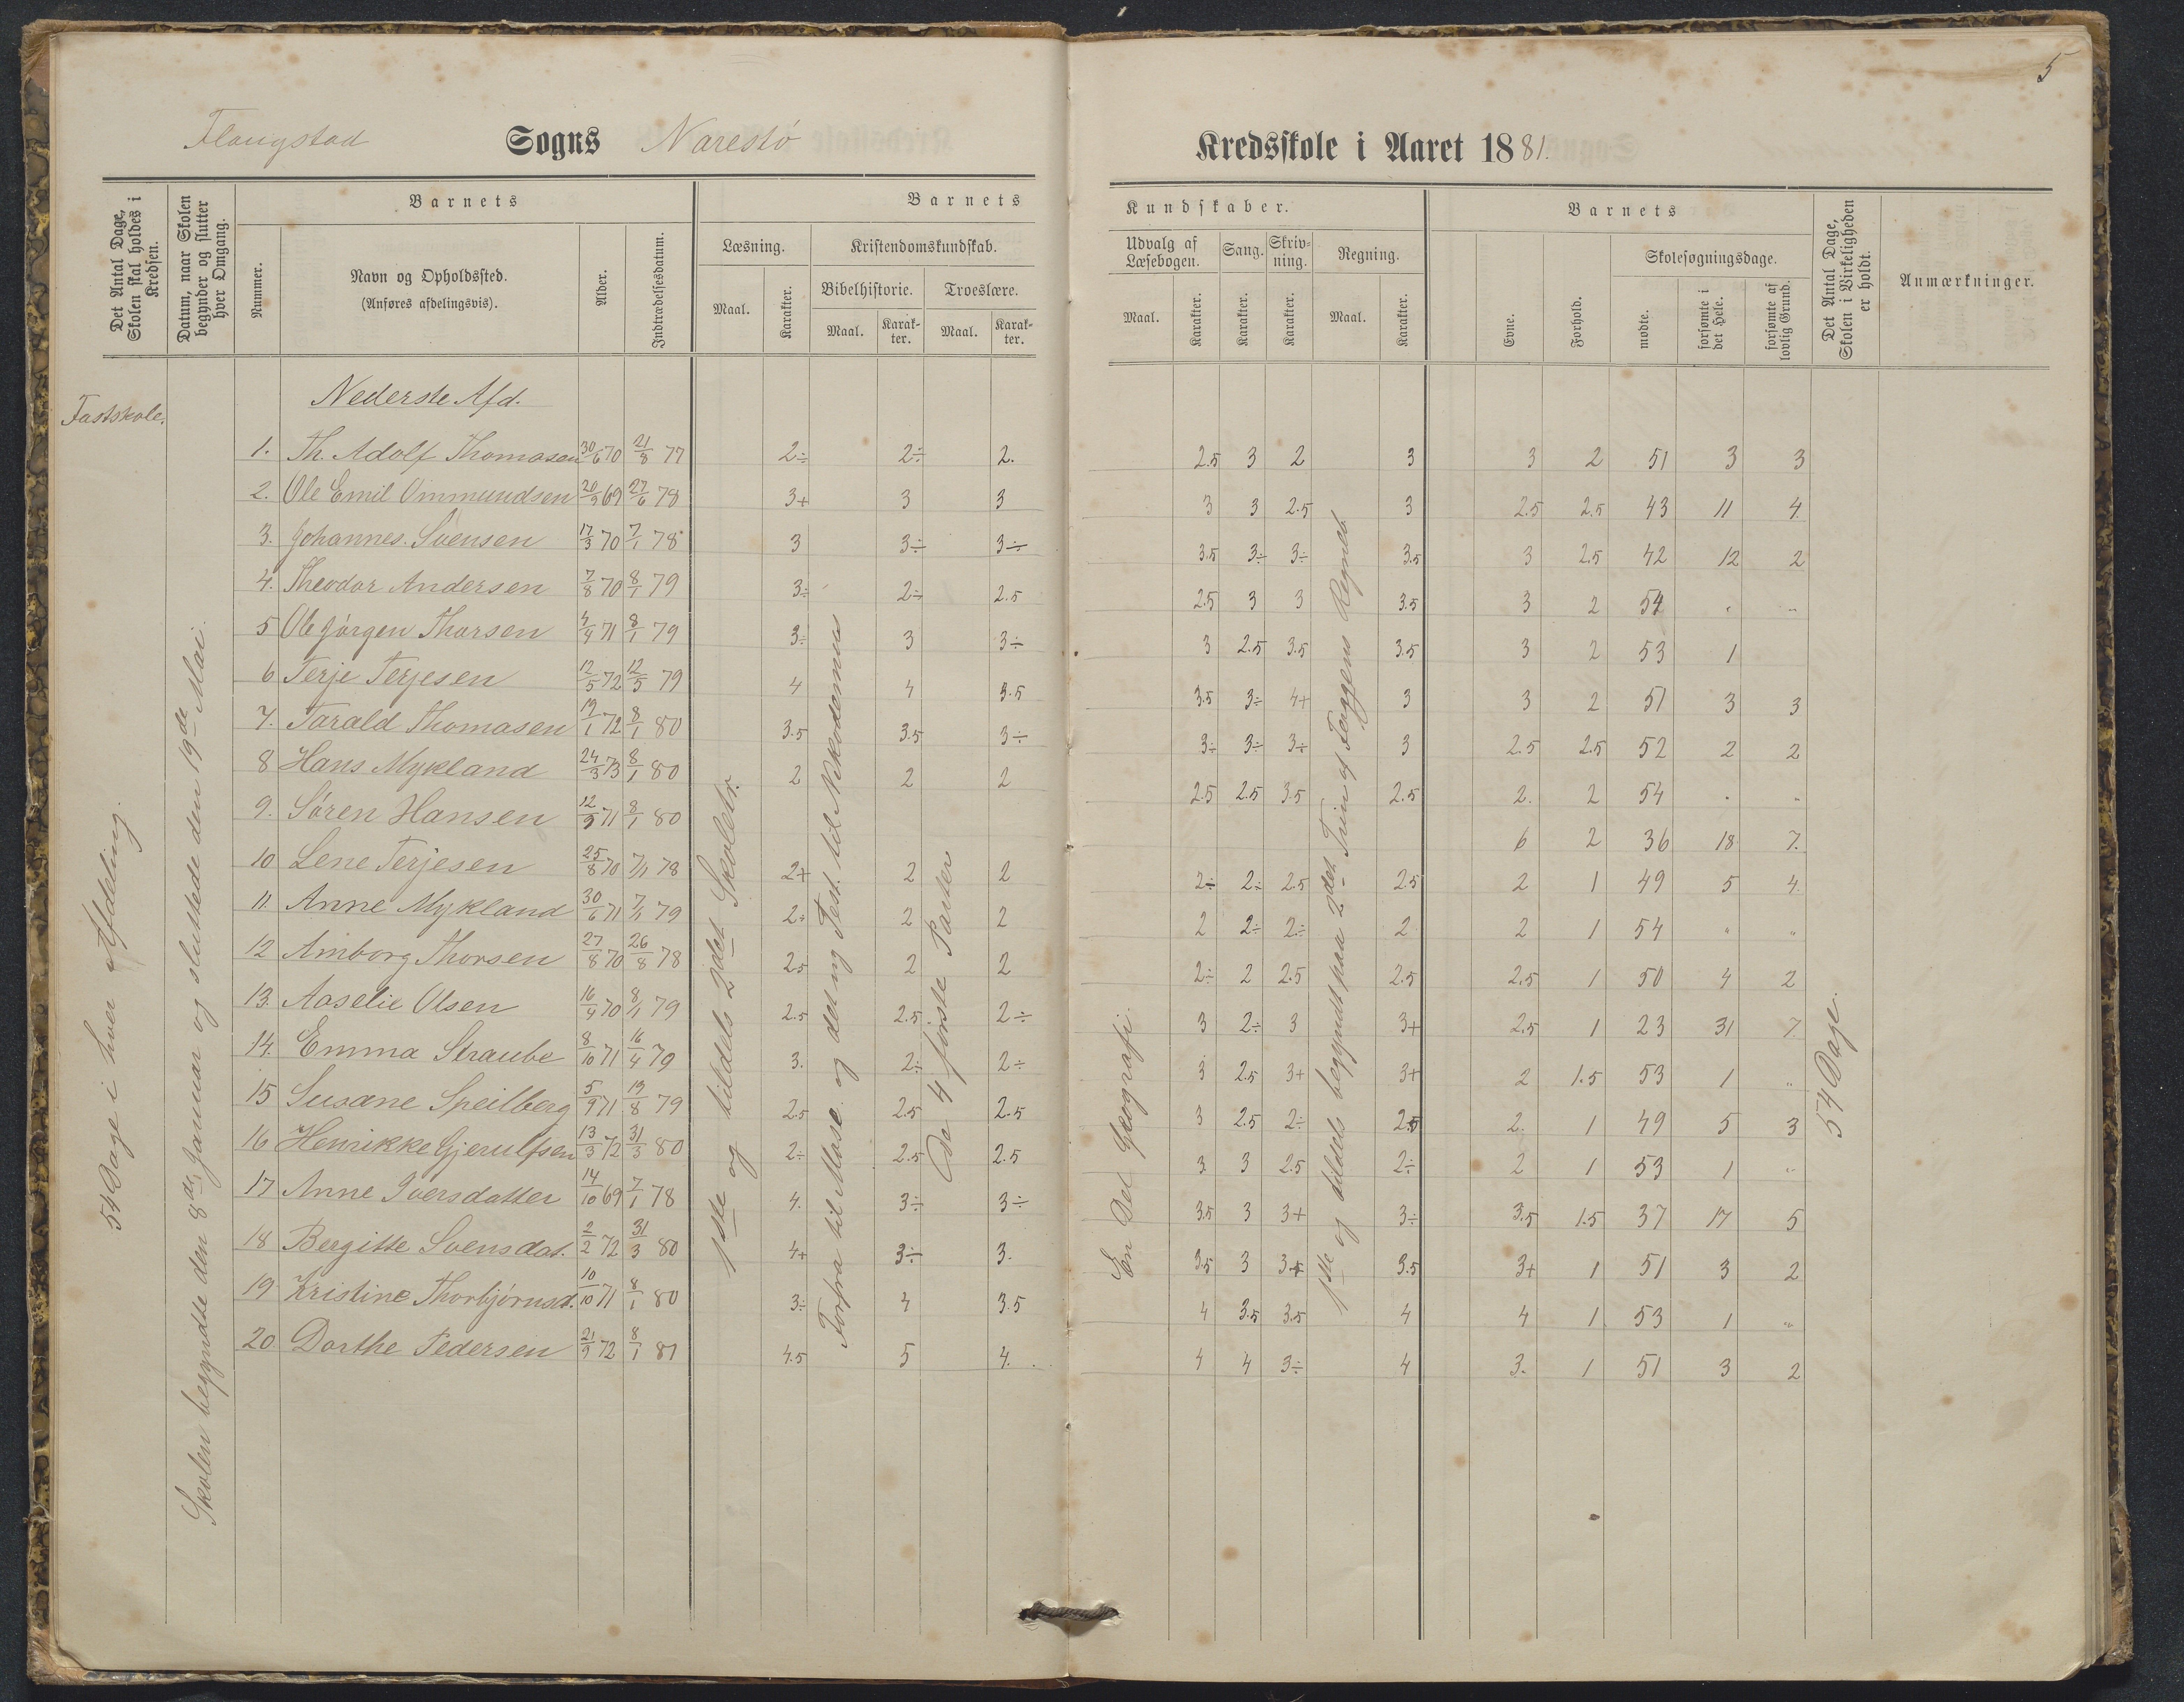 5
Flangstad Sogns Narestö Kredsskole i Aaret 1881.
Det Antal Dage, Skolen skal holdes i Kredsen.
Datum, naar Skolen begynder og slutter hver Omgang.
Barnets
Nummer.
Navn og Opholdssted.
(Anføres afdelingsvis).
Alder.
Indtrædelsesdatum.
Barnets Kundskaber.
Læsning.
Maal.
Karakter.
Kristendomskundskab.
Bibelhistorie.
Maal.
Karakter.
Troeslære.
Maal.
Karakter.
Udvalg af Læsebogen.
Maal.
Karakter.
Sang.
Karakter.
Skrivning.
Karakter.
Regning.
Maal.
Karakter.
Barnets
Evne.
Forhold.
Skolesøgningsdage.
mødte.
forsømte i det Hele.
forsømte af lovlig Grund.
Det Antal Dage, Skolen i Virkeligheden er holdt.
Anmærkninger.
Fastskole.
Nederste Afd.
1. Th. Adolf Thomasen 30/6 70 21/8 77 2÷ 2÷ 2. 2.5 3 2 3 3 2 51 3 3
2. Ole Emil Ommundsen 20/9 69 27/6 78 3+ 3 3 3 3 2.5 3 2.5 2.5 43 11 4
3. Johannes Svensen 17/3 70 7/1 78 3 3÷ 3÷ 3.5 3÷ 3÷ 3.5 3 2.5 42 12 2
4. Theodor Andersen 7/8 70 8/1 79 3÷ 2÷ 2.5 2.5 3 3 3.5 3 2 54 " "
5 Ole Jörgen Thorsen 4/4 71 8/1 79 3÷ 3 3÷ 3 2.5 3.5 3.5 3 2 53 1
6 Terje Terjesen 12/5 72 12/5 79 4 4 3.5 3.5 3÷ 4+ 3 3 2 51 3 3
7. Tarald Thomasen 19/1 72 8/1 80 3.5 3.5 3÷ 3÷ 3÷ 3+ 3 2.5 2.5 52 2 2
8 Hans Mykland 24/3 73 8/1 80 2 2 2 2.5 2.5 3.5 2.5 2. 2 54 " "
9. Sören Hansen 12/9 71 8/1 80 6 2 36 18 7.
10 Lene Terjesen 25/8 70 7/1 78 2+ 2 2 2÷ 2÷ 2.5 2.5 2 1 49 5 4.
11. Anne Mykland 30/6 71 7/1 79 2÷ 2 2 2 2÷ 2÷ 2 2 1 54 " "
12 Amborg Thorsen 27/8 70 26/8 78 2.5 2 2 2÷ 2 2.5 2.5 2.5 1 50 4 2
13. Aaselie Olsen 16/4 70 8/1 79 2.5 2.5 2÷ 3 2÷ 3 3+ 2.5 1 23 31 7.
14. Emma Straube 8/10 71 16/4 79 3. 2÷ 2÷ 3 2.5 3+ 3+ 2 1.5 53 1 "
15 Susane Speilberg 5/9 71 19/8 79 2.5 2.5 2.5 3 2.5 2÷ 2.5 2. 1 49 5 3
16 Henrikke Gjerulfsen 13/3 72 31/3 80 2÷ 2.5 2.5 3 3 2.5 2÷ 2 1 53 1 "
17 Anne Iversdatter 14/10 69 7/1 78 4. 3÷ 3÷ 3.5 3 3+ 3÷ 3.5 1.5 37 17 5
18 Bergitte Svensdat. 2/2 72 31/3 80 4+ 3÷ 3. 3.5 3 3.+ 3.5 3+ 1 51 3 2
19 Kristine Thorbjörnsd. 10/10 71 8/1 80 3÷ 4 3.5 4 3.5 3.5 4 4 1 53 1 "
20 Dorthe Pedersen 21/9 72 8/1 81 4.5 5 4. 4 4 3÷ 4 3. 1 51 3 2
54 Dage i hver Afdeling.
Skolen begyndte den 8de Januar og sluttede den 19de Mai.
1ste og tildels 2det Skoletr.
Forfra til Mose og det ny Test. til Nikodemus
De 4 første Parter
En Del Geografi.
1ste og tildels begyndt paa 2det Trin af Faggens Regneb
54 Dage.